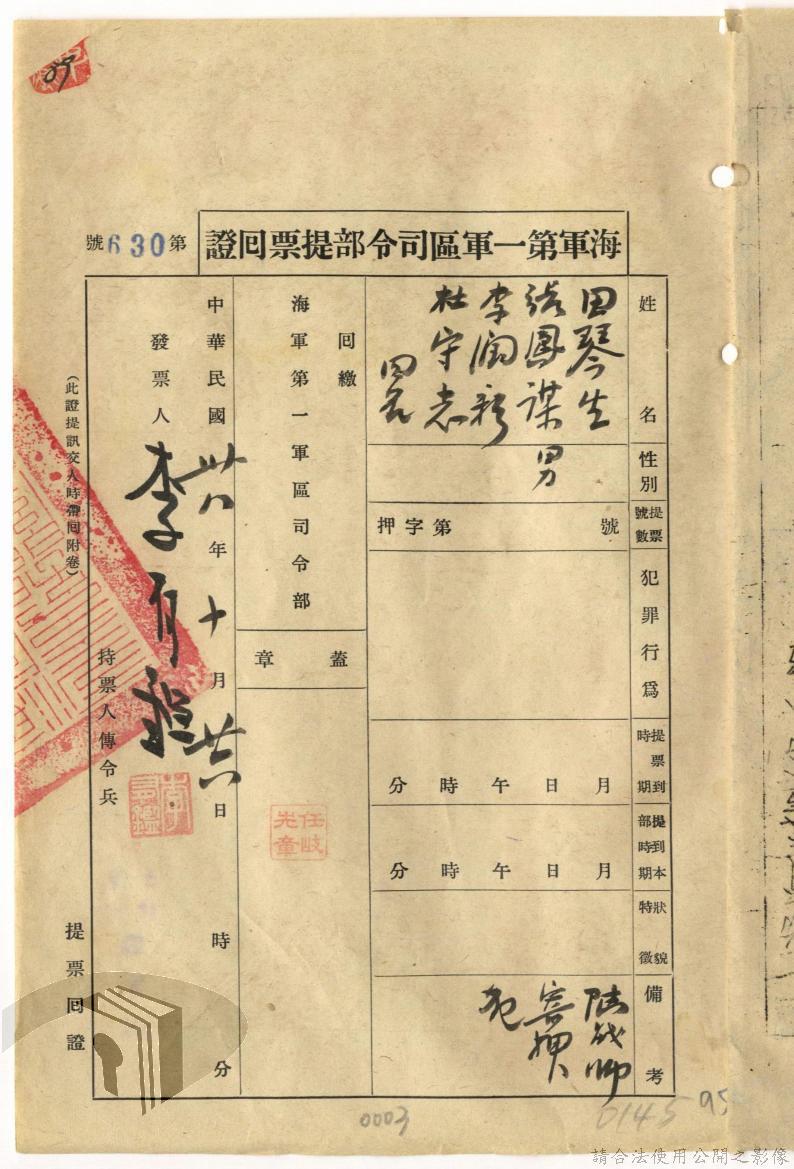 89
海軍第一軍區司令部提票回證
第630號
姓名
田琴生
張鳳謀
李潤
杜守志
四名
性別
男
提票號數
押字第 號
犯罪行為
提票到時期
月 日 午 時 分
提到本部時期
月 日 午 時 分
狀貌特徵
備考
陸戰師
寄押
犯
回繳
海軍第一軍區司令部
蓋章
任岐
先章
中華民國卅八年十月廿六日 時 分
發票人 李有
持票人傳令兵
(此證提訊交人時帶回附卷)
提票回證
0003
0145
95
請合法使用公開之影像